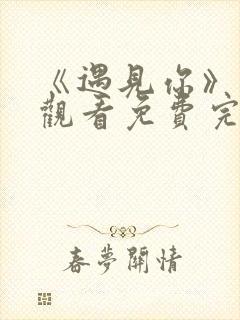 《遇見你》
觀看免費完
春夢關情